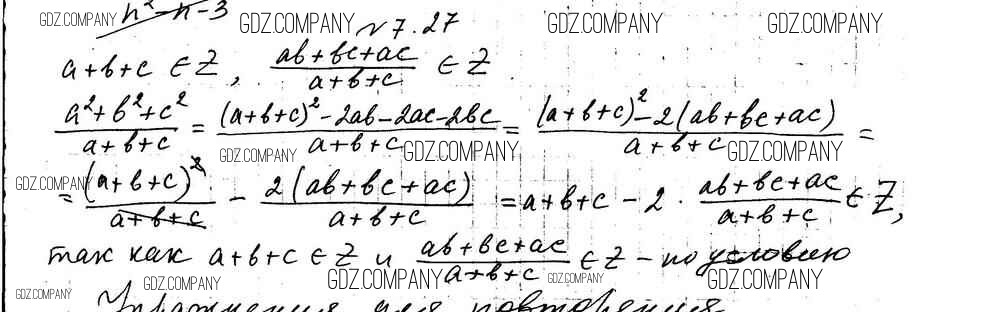 n² - n - 3
GDZ.COMPANY № 7.27 GDZ.COMPANY GDZ.COMPANY
a+b+c ∈ Z, (ab+bc+ac)/(a+b+c) ∈ Z
(a²+b²+c²)/(a+b+c) = ((a+b+c)² - 2ab - 2ac - 2bc)/(a+b+c) = ((a+b+c)² - 2(ab+bc+ac))/(a+b+c) =
GDZ.COMPANY GDZ.COMPANY GDZ.COMPANY
GDZ.COMPANY = (a+b+c)²/(a+b+c) - 2(ab+bc+ac)/(a+b+c) = a+b+c - 2 · (ab+bc+ac)/(a+b+c) ∈ Z,
так как a+b+c ∈ Z и (ab+bc+ac)/(a+b+c) ∈ Z - по условию
GDZ.COMPANY GDZ.COMPANY GDZ.COMPANY GDZ.COMPANY GDZ.COMPANY
Упражнения для повторения